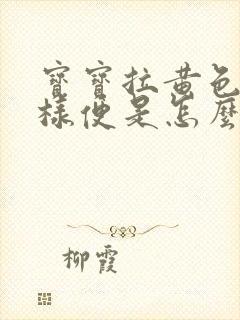 寶寶拉黃色
樣便是怎麼
柳霞